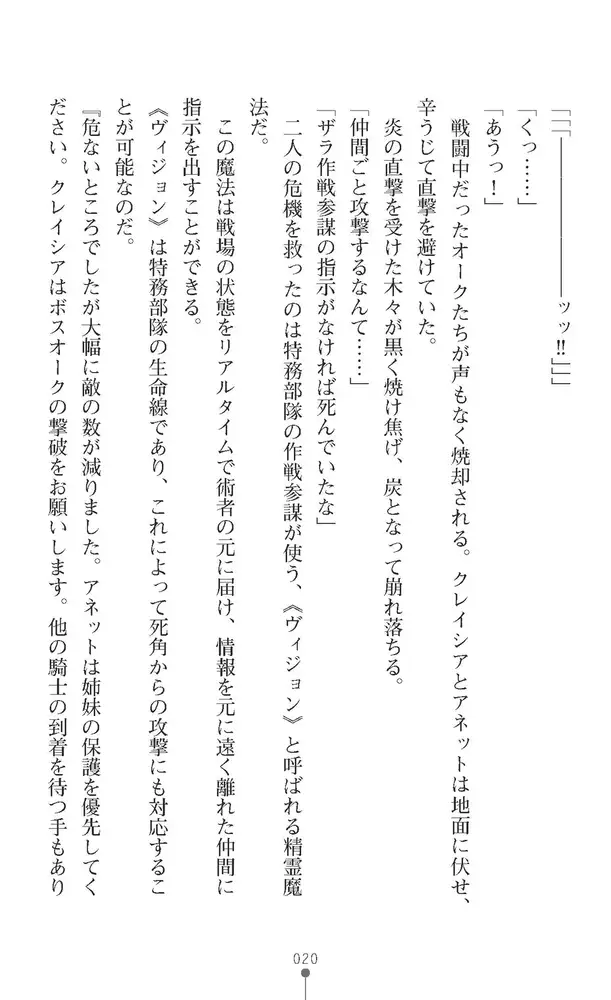 「「「――――――――ッッ!!」」」
「くっ……」
「あうっ！」
　戦闘中だったオークたちが声もなく焼却される。クレイシアとアネットは地面に伏せ、
辛うじて直撃を避けていた。
　炎の直撃を受けた木々が黒く焼け焦げ、炭となって崩れ落ちる。
「仲間ごと攻撃するなんて……」
「ザラ作戦参謀の指示がなければ死んでいたな」
　二人の危機を救ったのは特務部隊の作戦参謀が使う、《ヴィジョン》と呼ばれる精霊魔
法だ。
　この魔法は戦場の状態をリアルタイムで術者の元に届け、情報を元に遠く離れた仲間に
指示を出すことができる。
　《ヴィジョン》は特務部隊の生命線であり、これによって死角からの攻撃にも対応するこ
とが可能なのだ。
『危ないところでしたが大幅に敵の数が減りました。アネットは姉妹の保護を優先してく
ださい。クレイシアはボスオークの撃破をお願いします。他の騎士の到着を待つ手もあり
020